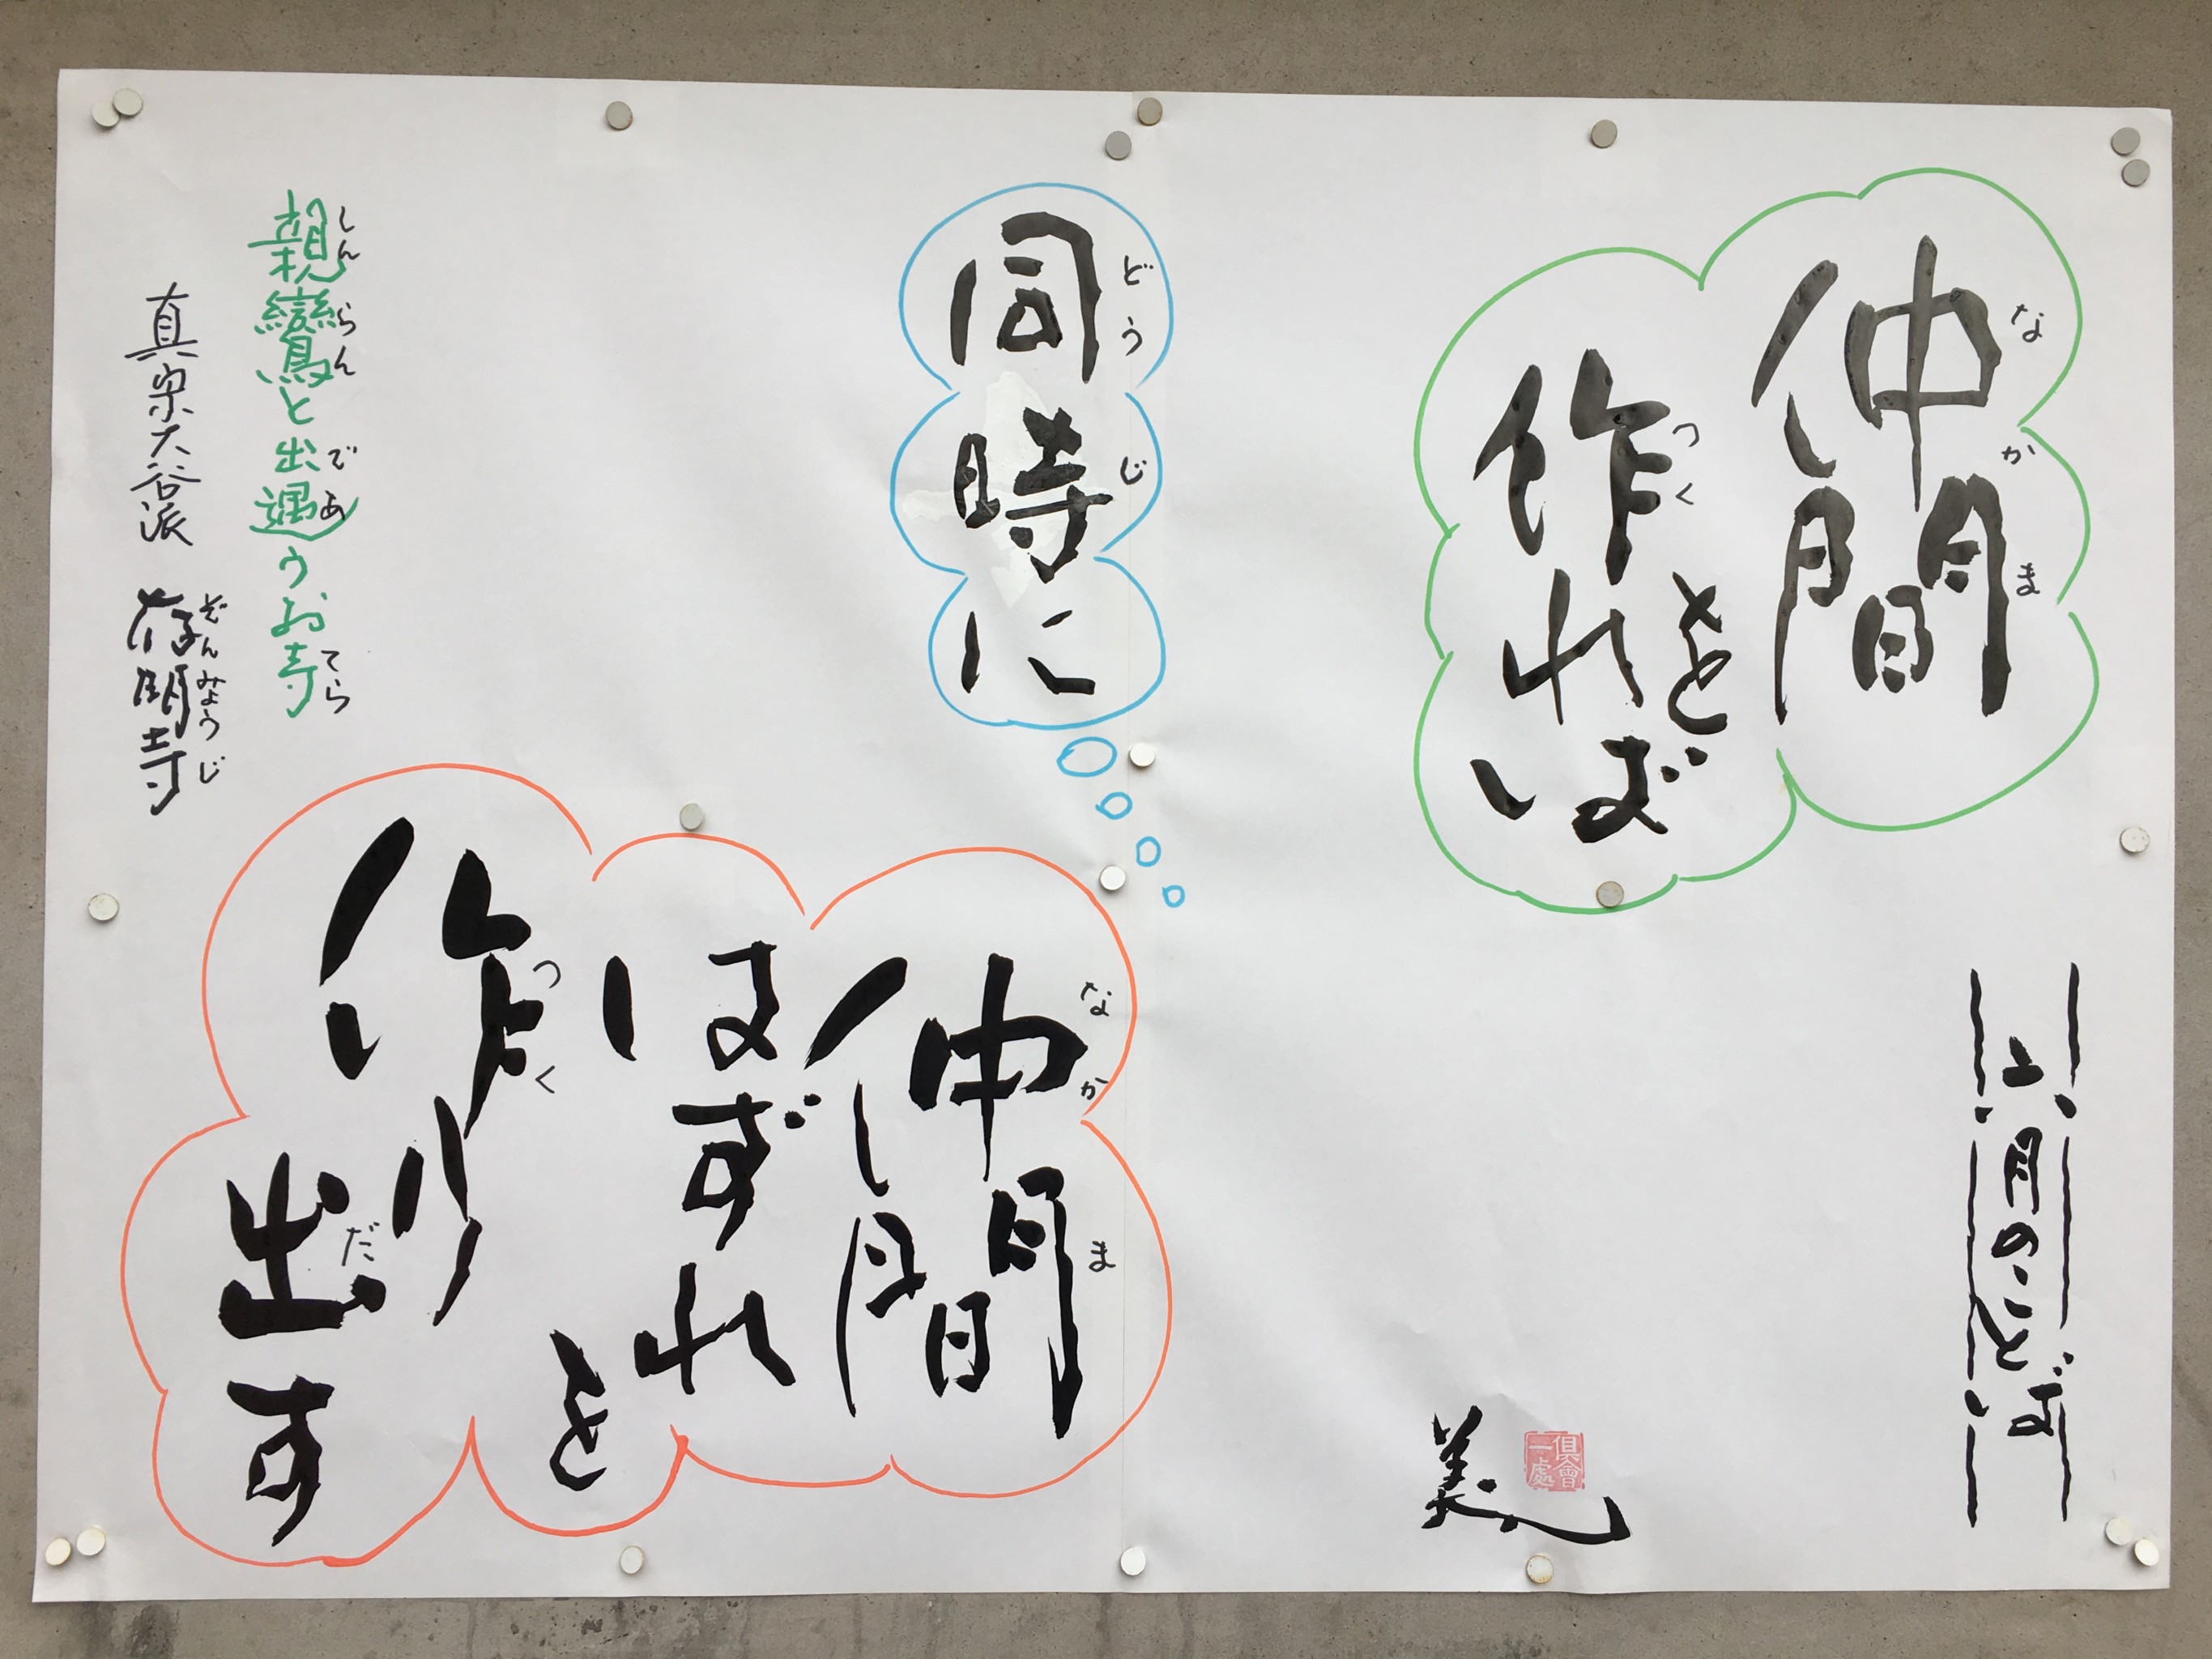 六月のことば
仲間を
なかま
作れば
つく
同時に
どうじ
仲間
なかま
はずれを
作り
つく
出す
だ
倶會
一處
親鸞と出遇うお寺
しんらん であ てら
真宗大谷派 存明寺
ぞんみょうじ